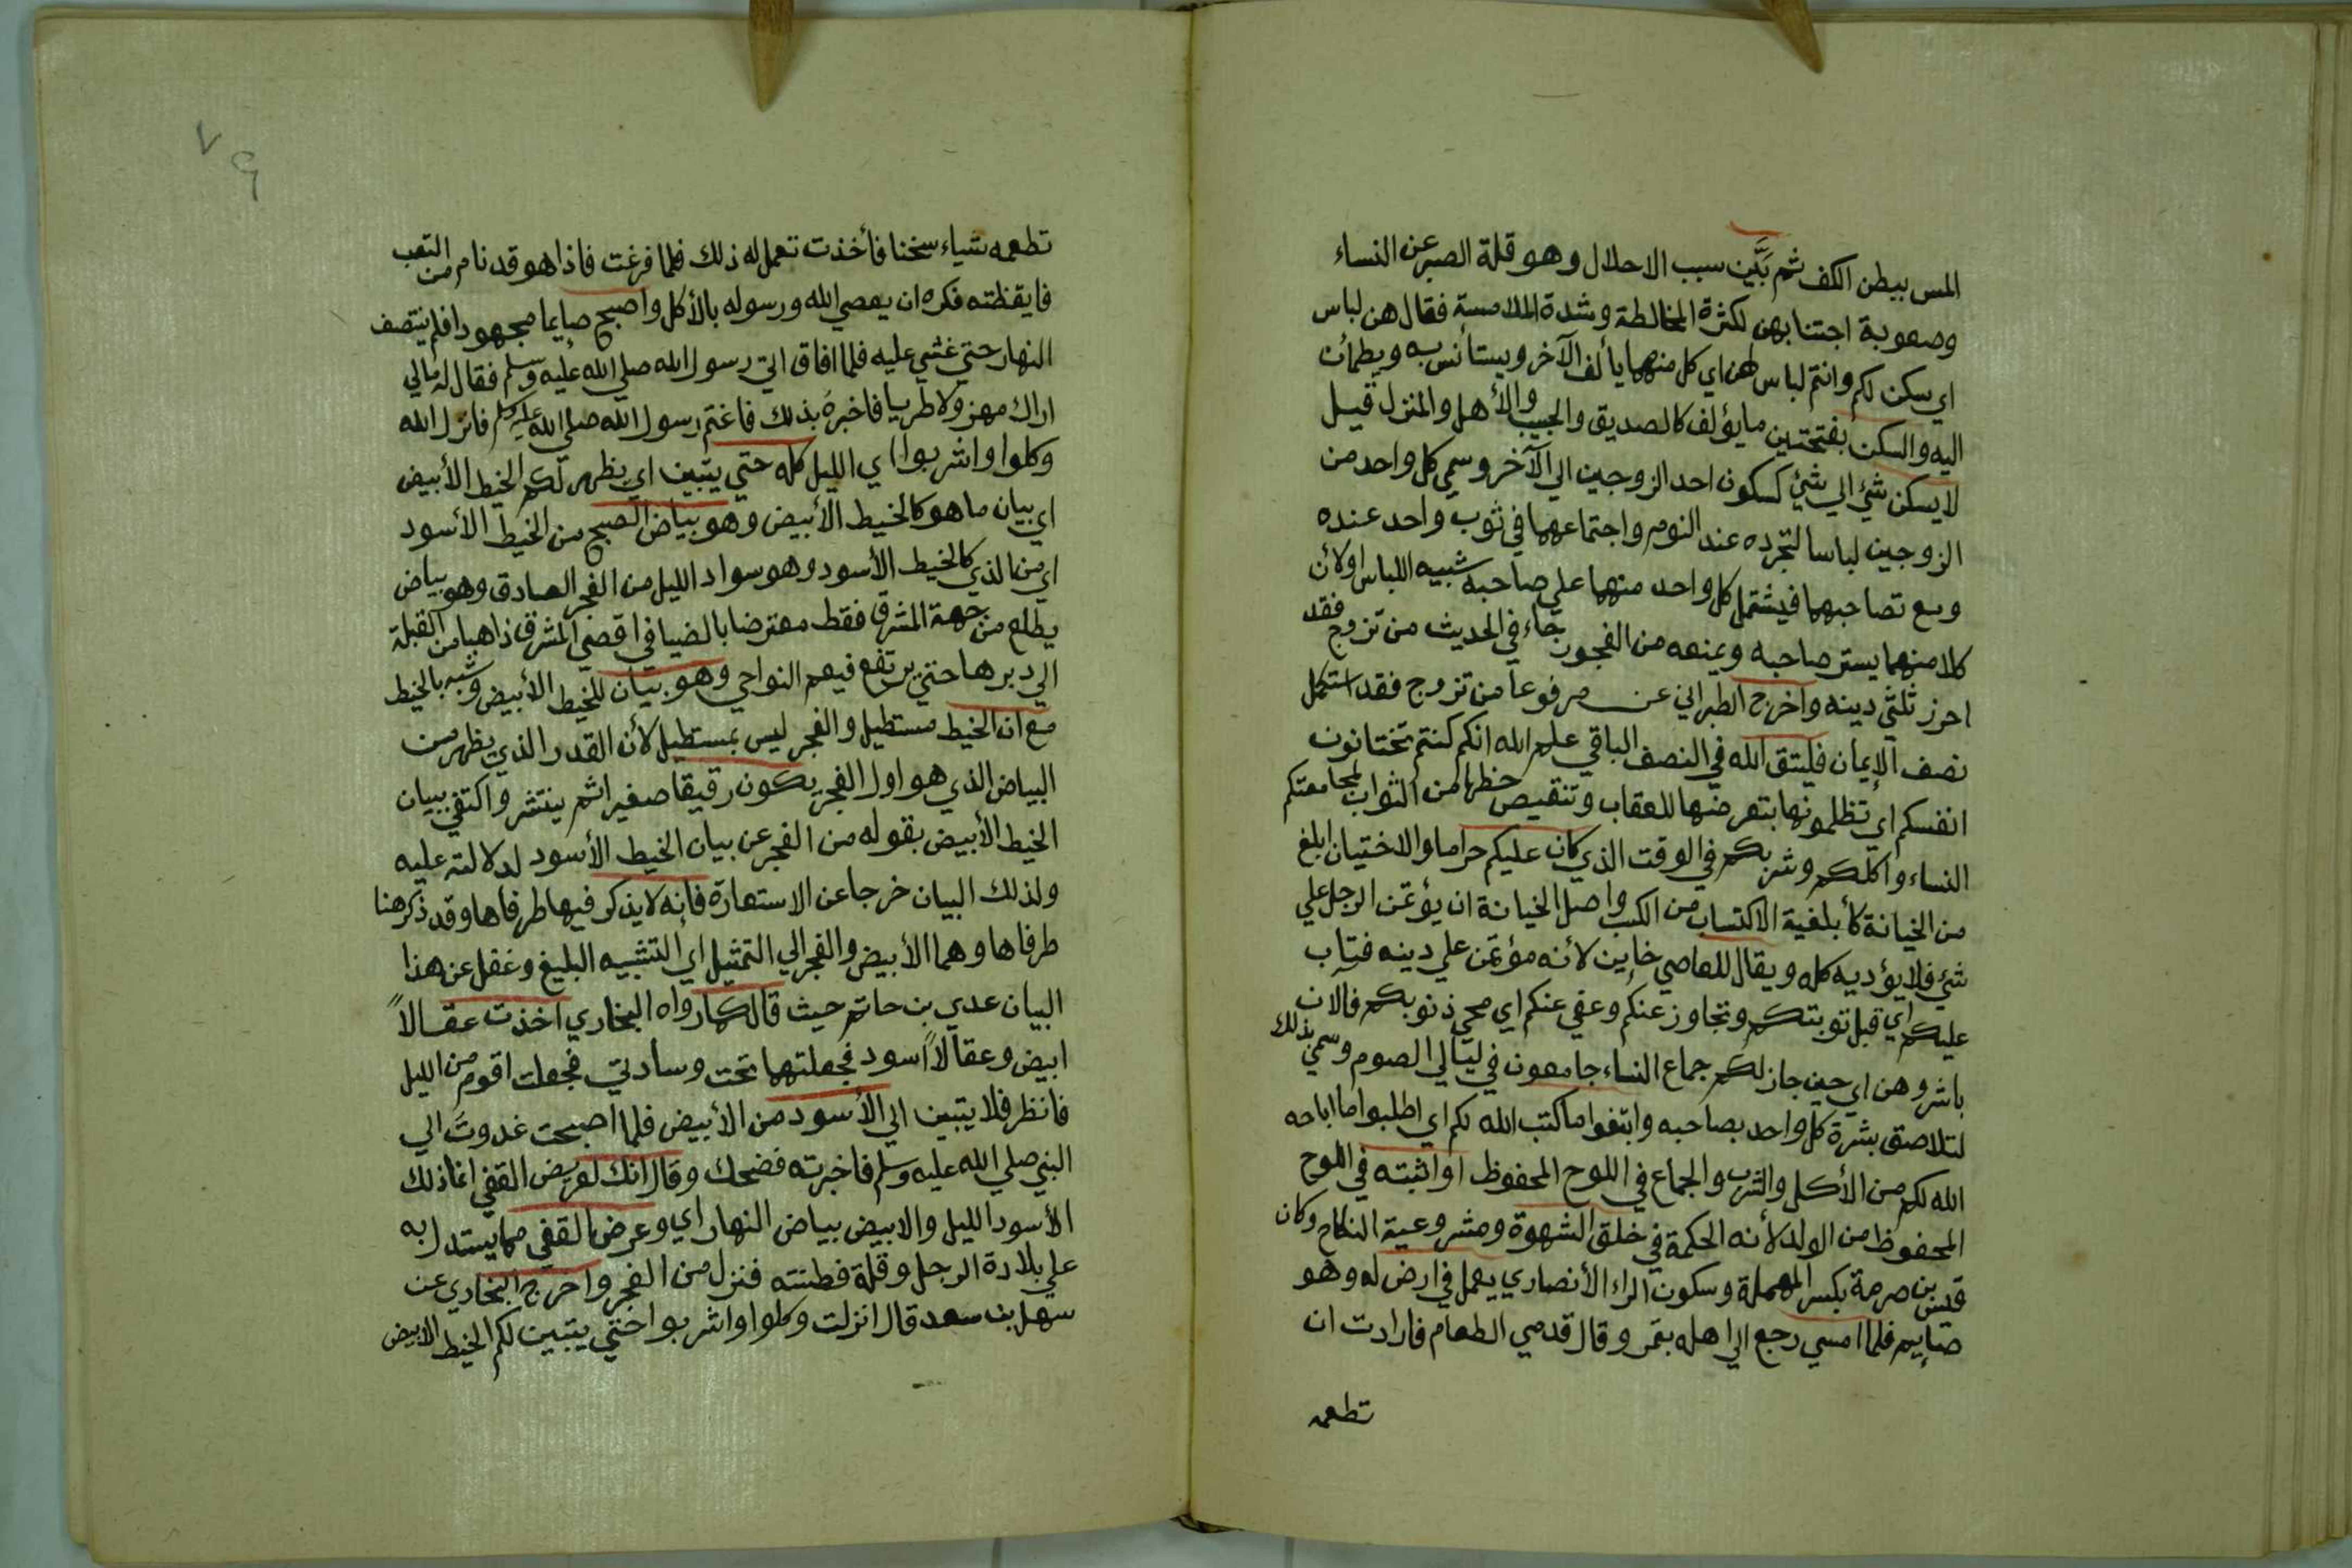 المس ببطن الكف ثم بَيَّن سبب الاحلال وهو قلة الصبر عن النساء
وصعوبة اجتنابهن لكثرة المخالطة وشدة الملامسة فقال هن لباس
اي سكن لكم وانتم لباس لهن اي كل منهما يألف الآخر ويستأنس به ويطمأن
اليه والسكن بفتحتين ما يؤلف كالصديق والحبيب والأهل والمنزل قيل
لا يسكن شئ الي شئ كسكون احد الزوجين الي الآخر وسمي كل واحد من
الزوجين لباسا لتجرده عند النوم واجتماعهما في ثوب واحد عنده
ومع تصاحبهما فيشتمل كل واحد منهما علي صاحبه شبيه اللباس او لأن
كلا منهما يستر صاحبه ويمنعه من الفجور جاء في الحديث من تزوج فقد
احرز ثلثي دينه واخرج الطبراني عن مرفوعا من تزوج فقد استكمل
نصف الإيمان فليتق الله في النصف الباقي علم الله انكم كنتم تختانون
انفسكم اي تظلمونها بتعرضها للعقاب وتنقيص حظها من الثواب لمجامعتكم
النساء واكلكم وشربكم في الوقت الذي كان عليكم حراما والاختيان ابلغ
من الخيانة كأبلغية الاكتساب من الكسب واصل الخيانة ان يؤتمن الرجل علي
شئ فلا يؤديه كله ويقال للعاصي خاين لأنه مؤتمن علي دينه فتاب
عليكم اي قبل توبتكم وتجاوز عنكم وعفي عنكم اي محي ذنوبكم فالان
باشروهن اي حين جاز لكم جماع النساء جامعون في ليالي الصوم وسمي بذلك
لتلاصق بشرة كل واحد بصاحبه وابتغوا ما كتب الله لكم اي اطلبوا ما اباحه
الله لكم من الأكل والشرب والجماع في اللوح المحفوظ او اثبته في اللوح
المحفوظ من الولد لأنه الحكمة في خلق الشهوة ومشروعية النكاح وكان
قيس بن صرمة بكسر المهملة وسكون الراء الأنصاري يعمل في ارض له وهو
صايم فلما امسي رجع الي اهله بتمر وقال قدمي الطعام فارادت ان
تطعمه
٧٩
تطعمه شياء سخنا فأخذت تعمل له ذلك فلما فرغت فاذا هو قد نام من التعب
فايقظته فكره ان يعصي الله ورسوله بالأكل واصبح صايما مجهودا فلم ينتصف
النهار حتي غشي عليه فلما افاق اتي رسول الله صلي الله عليه وسلم فقال له مالي
اراك مهزولا طريا فاخبره بذلك فاغتم رسول الله صلي الله عليه وسلم فانزل الله
وكلوا واشربوا اي الليل كله حتي يتبين اي يظهر لكم الخيط الأبيض
اي بيان ما هو كالخيط الأبيض وهو بياض الصبح من الخيط الأسود
اي من الذي كالخيط الأسود وهو سواد الليل من الفجر الصادق وهو بياض
يطلع من جهة المشرق فقط معترضا بالضيا في اقصي المشرق ذاهبا من القبلة
الي دبرها حتي يرتفع فيعم النواحي وهو بيان للخيط الأبيض وشبه بالخيط
مع ان الخيط مستطيل والفجر ليس بمستطيل لأن القدر الذي يظهر من
البياض الذي هو اول الفجر يكون رقيقا صغيرا ثم ينتشر واكتفي ببيان
الخيط الأبيض بقوله من الفجر عن بيان الخيط الأسود لدلالته عليه
ولذلك البيان خرجا عن الاستعارة فانه لا يذكر فيها طرفاها وقد ذكر هنا
طرفاها وهما الأبيض والفجر الي التمثيل اي التشبيه البليغ وغفل عن هذا
البيان عدي بن حاتم حيث قال كما رواه البخاري اخذت عقالاً
ابيض وعقالاً اسود فجعلتهما تحت وسادتي فجعلت اقوم من الليل
فانظر فلا يتبين الي الأسود من الأبيض فلما اصبحت غدوت الي
النبي صلي الله عليه وسلم فاخبرته فضحك وقال انك لعريض القفي انما ذلك
الأسود الليل والابيض بياض النهار اي وعرض القفي مما يستدل به
علي بلادة الرجل وقلة فطنته فنزل من الفجر واخرج البخاري عن
سهل بن سعد قال انزلت وكلوا واشربوا حتي يتبين لكم الخيط الابيض